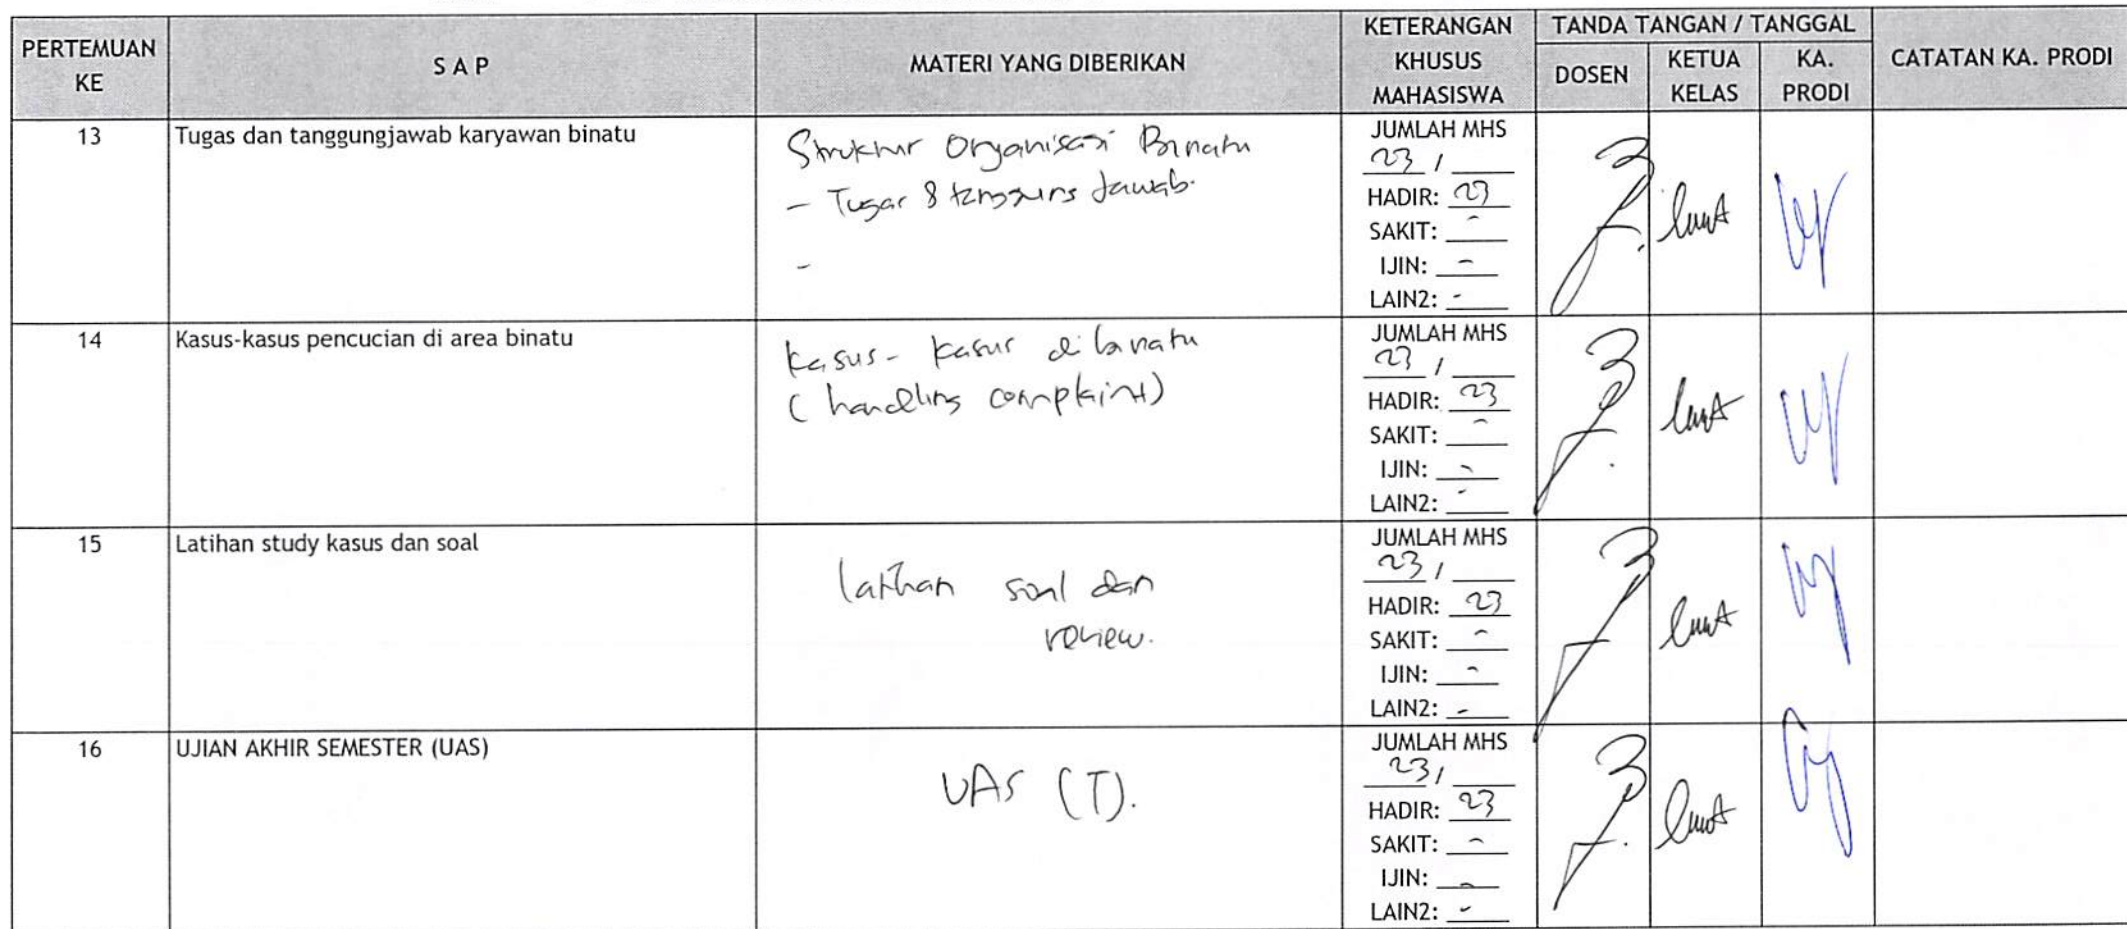 PERTEMUAN KE
S A P
MATERI YANG DIBERIKAN
KETERANGAN KHUSUS MAHASISWA
TANDA TANGAN / TANGGAL
DOSEN
KETUA KELAS
KA. PRODI
CATATAN KA. PRODI
13
Tugas dan tanggungjawab karyawan binatu
Struktur Organisasi Binatu
- Tugas & tanggung Jawab.
-
JUMLAH MHS
23 /
HADIR: 23
SAKIT: -
IJIN: -
LAIN2: -
14
Kasus-kasus pencucian di area binatu
Kasus-kasus di binatu
(handling complaint)
JUMLAH MHS
23 /
HADIR: 23
SAKIT: -
IJIN: -
LAIN2: -
15
Latihan study kasus dan soal
latihan soal dan
review.
JUMLAH MHS
23 /
HADIR: 23
SAKIT: -
IJIN: -
LAIN2: -
16
UJIAN AKHIR SEMESTER (UAS)
UAS (T).
JUMLAH MHS
23 /
HADIR: 23
SAKIT: -
IJIN: -
LAIN2: -